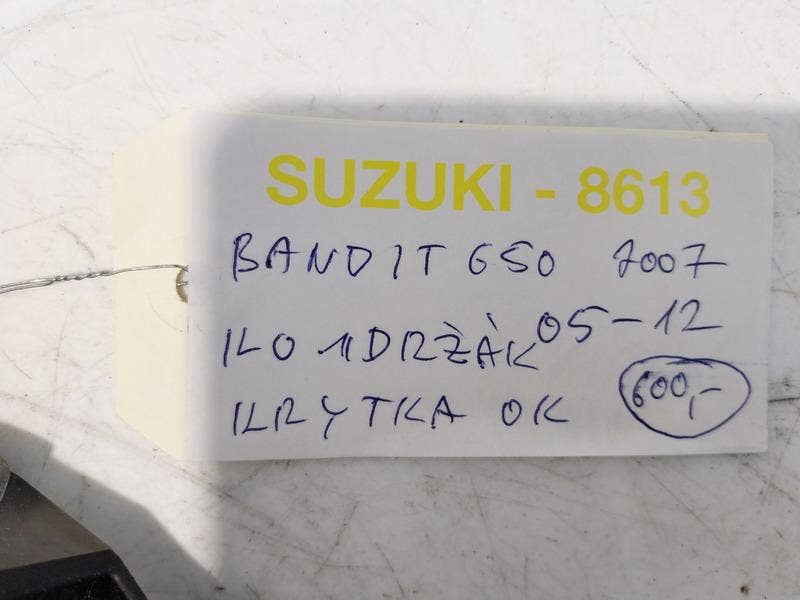 SUZUKI - 8613
BANDIT 650 2007
05-12
KRYTKA OK 600,-